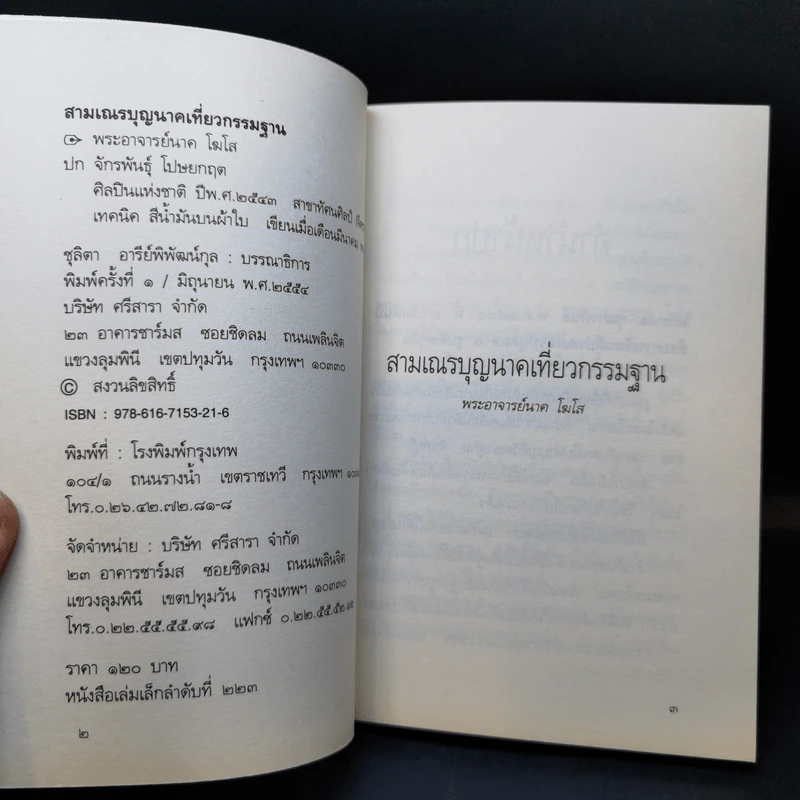 สามเณรบุญนาคเที่ยวกรรมฐาน
พระอาจารย์นาค โฆโส
ปก จักรพันธุ์ โปษยกฤต
ศิลปินแห่งชาติ ปีพ.ศ.๒๕๔๓ สาขาทัศนศิลป์
เทคนิค สีน้ำมันบนผ้าใบ เขียนเมื่อเดือนมีนาคม
ชุลิตา อารีย์พิพัฒน์กุล : บรรณาธิการ
พิมพ์ครั้งที่ ๑ / มิถุนายน พ.ศ.๒๕๕๔
บริษัท ศรีสารา จำกัด
๒๓ อาคารชาร์มส ซอยชิดลม ถนนเพลินจิต
แขวงลุมพินี เขตปทุมวัน กรุงเทพฯ ๑๐๓๓๐
© สงวนลิขสิทธิ์
ISBN : 978-616-7153-21-6
พิมพ์ที่ : โรงพิมพ์กรุงเทพ
๑๐๔/๑ ถนนรางน้ำ เขตราชเทวี กรุงเทพฯ
โทร.๐.๒๖.๔๒.๗๒.๘๑-๘
จัดจำหน่าย : บริษัท ศรีสารา จำกัด
๒๓ อาคารชาร์มส ซอยชิดลม ถนนเพลินจิต
แขวงลุมพินี เขตปทุมวัน กรุงเทพฯ ๑๐๓๓๐
โทร.๐.๒๒.๕๕.๕๕.๙๘ แฟกซ์ ๐.๒๒.๕๕.๕๒.๑๒
ราคา ๑๒๐ บาท
หนังสือเล่มเล็กลำดับที่ ๒๒๓
๒
สามเณรบุญนาคเที่ยวกรรมฐาน
พระอาจารย์นาค โฆโส
๓